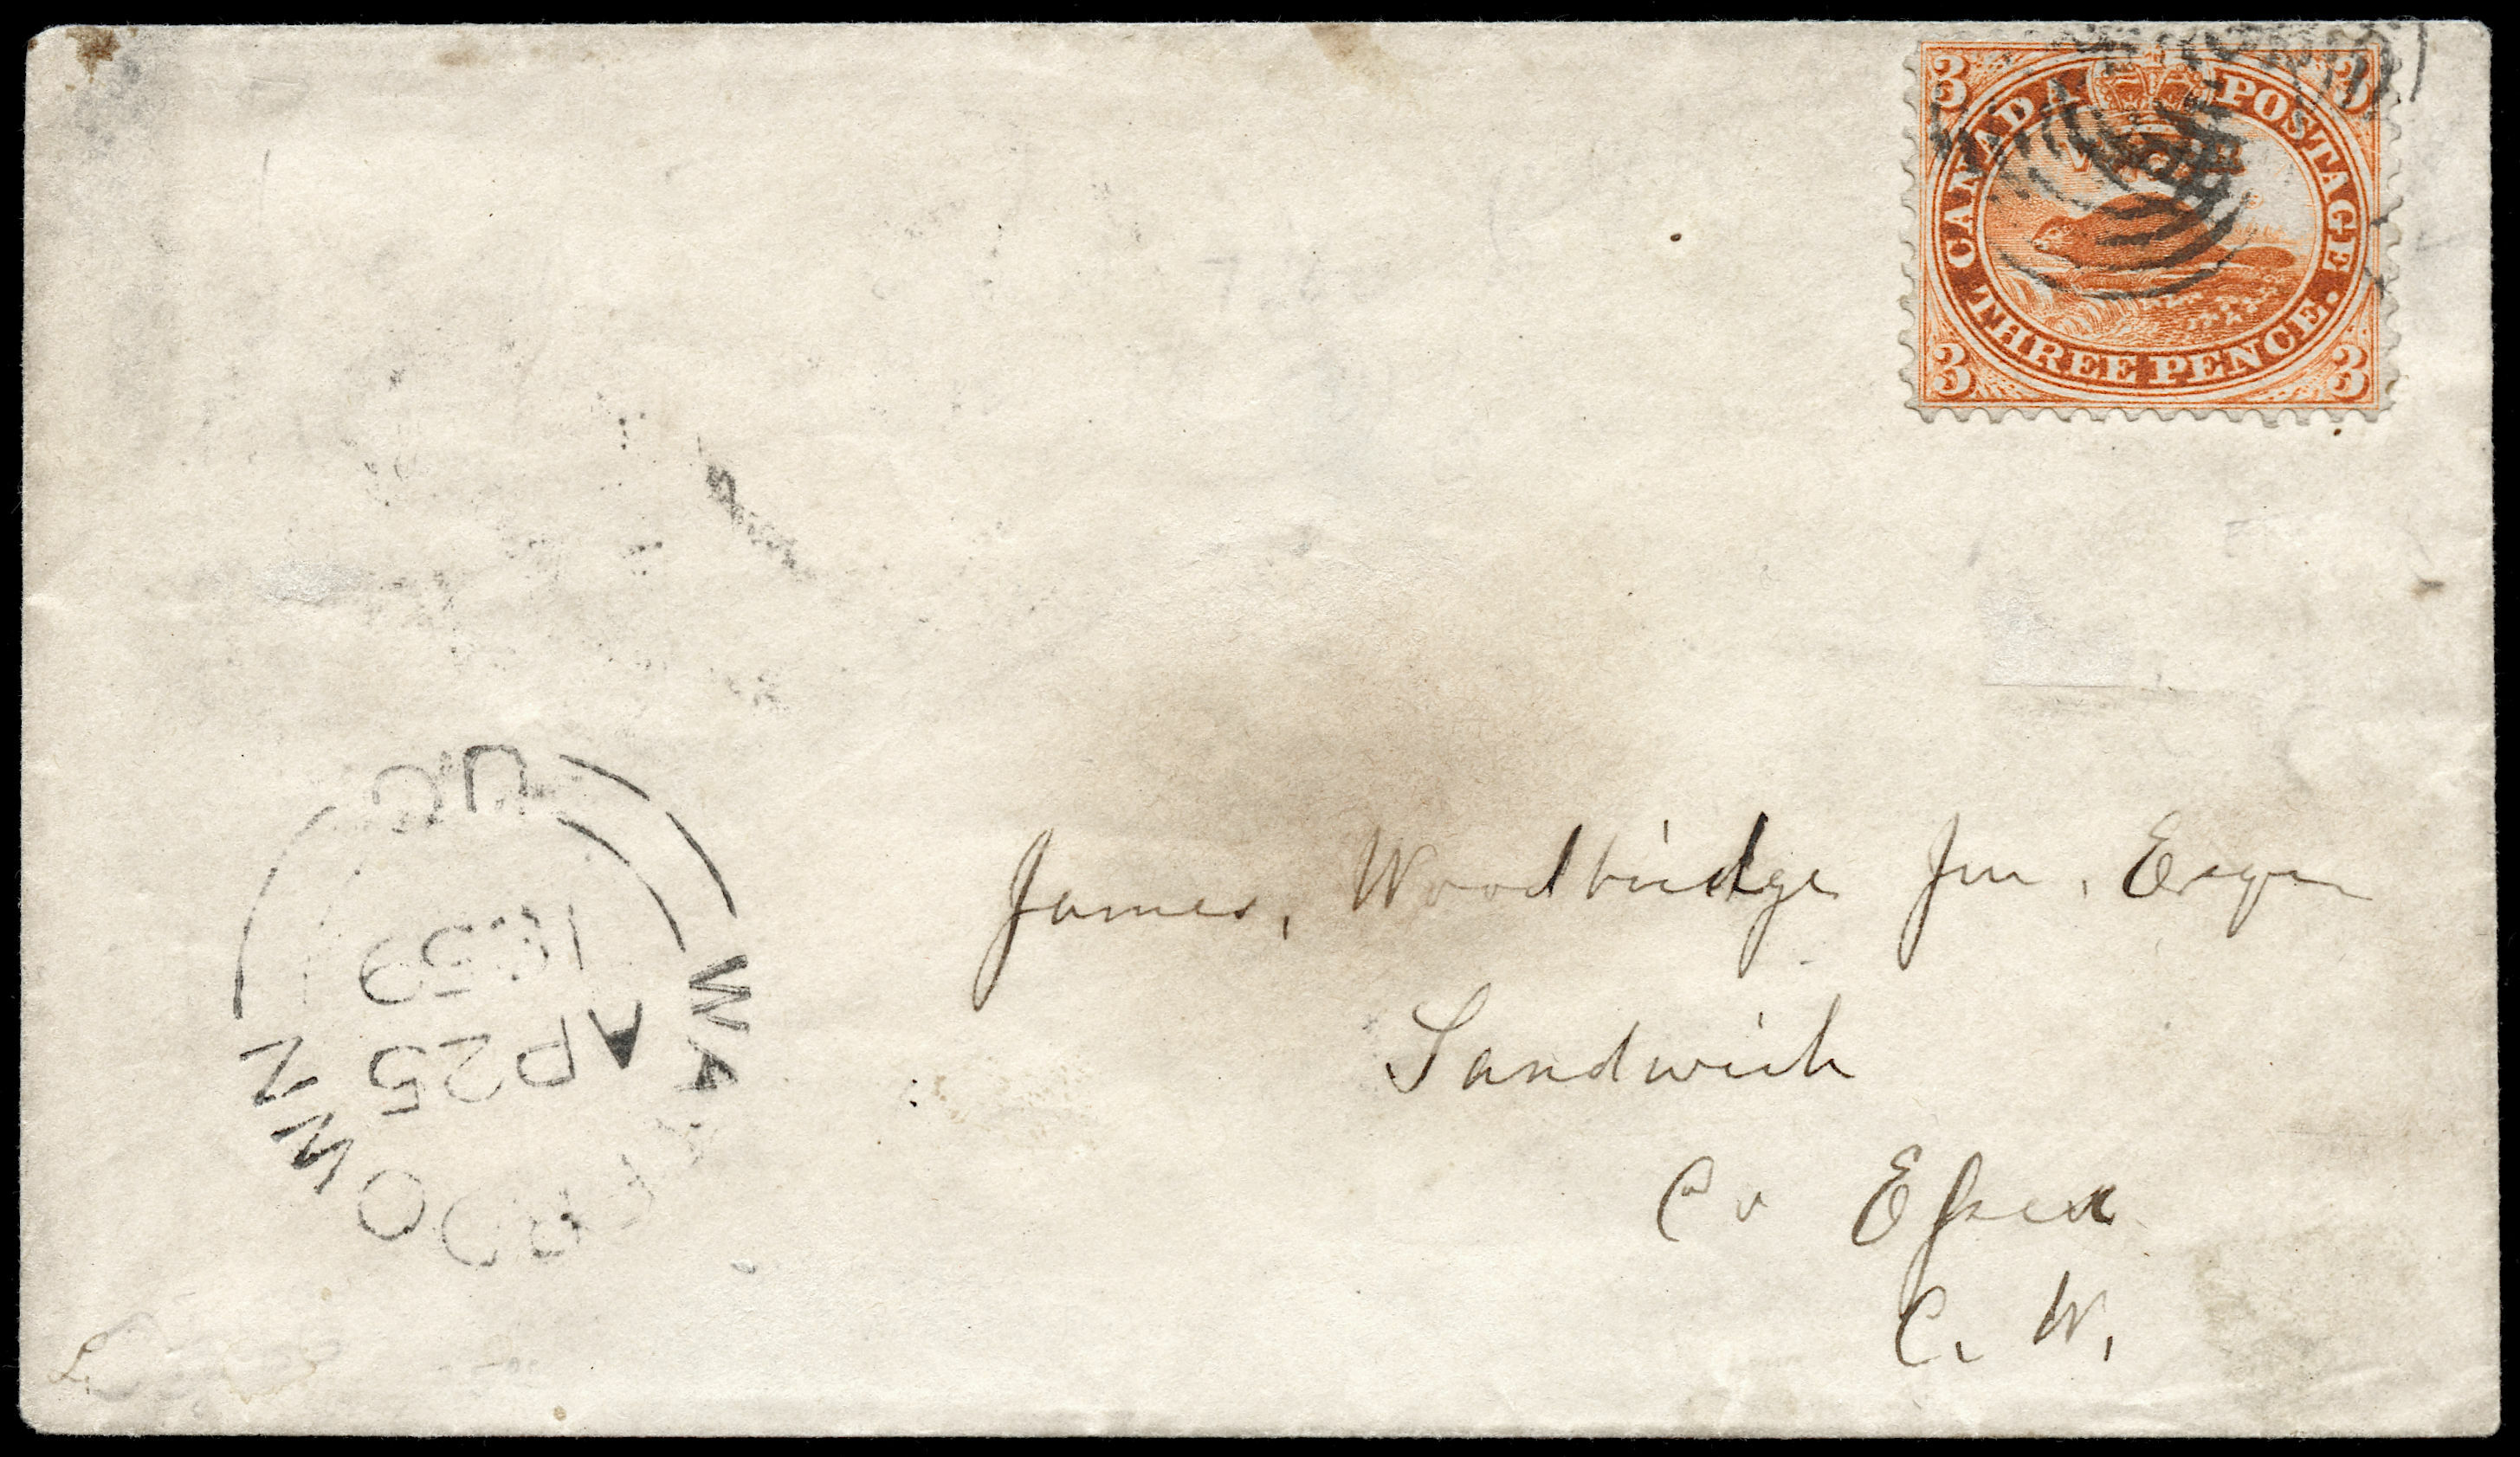 3 3
CANADA POSTAGE
THREE PENCE.
3 3
WATERDOWN
AP 25
1859
U.C
James, Woodbridge Jun, Esqur
Sandwich
Co Essex
C. W.
L.